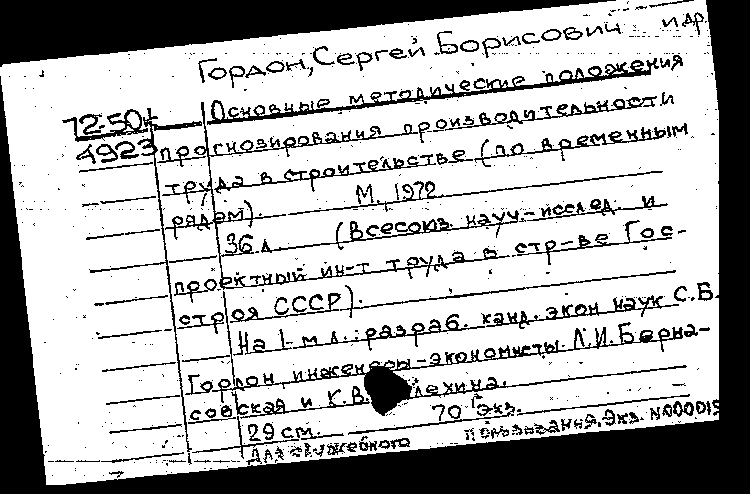 Гордон, Сергей Борисович и др
72-50к Основные методические положения
4923 прогнозирования производительности
труда в строительстве (по временным
рядам). М., 1972
36 л. (Всесоюз науч.-исслед. и
проектный ин-т труда в стр-ве Гос-
строя СССР).
На 1-м л.: разраб. канд. экон наук С.Б.
Гордон, инженеры-экономисты Л.И. Берна-
совская и К.В.
29 см. 70 экз.
Для служебного пользования. Экз. N000015